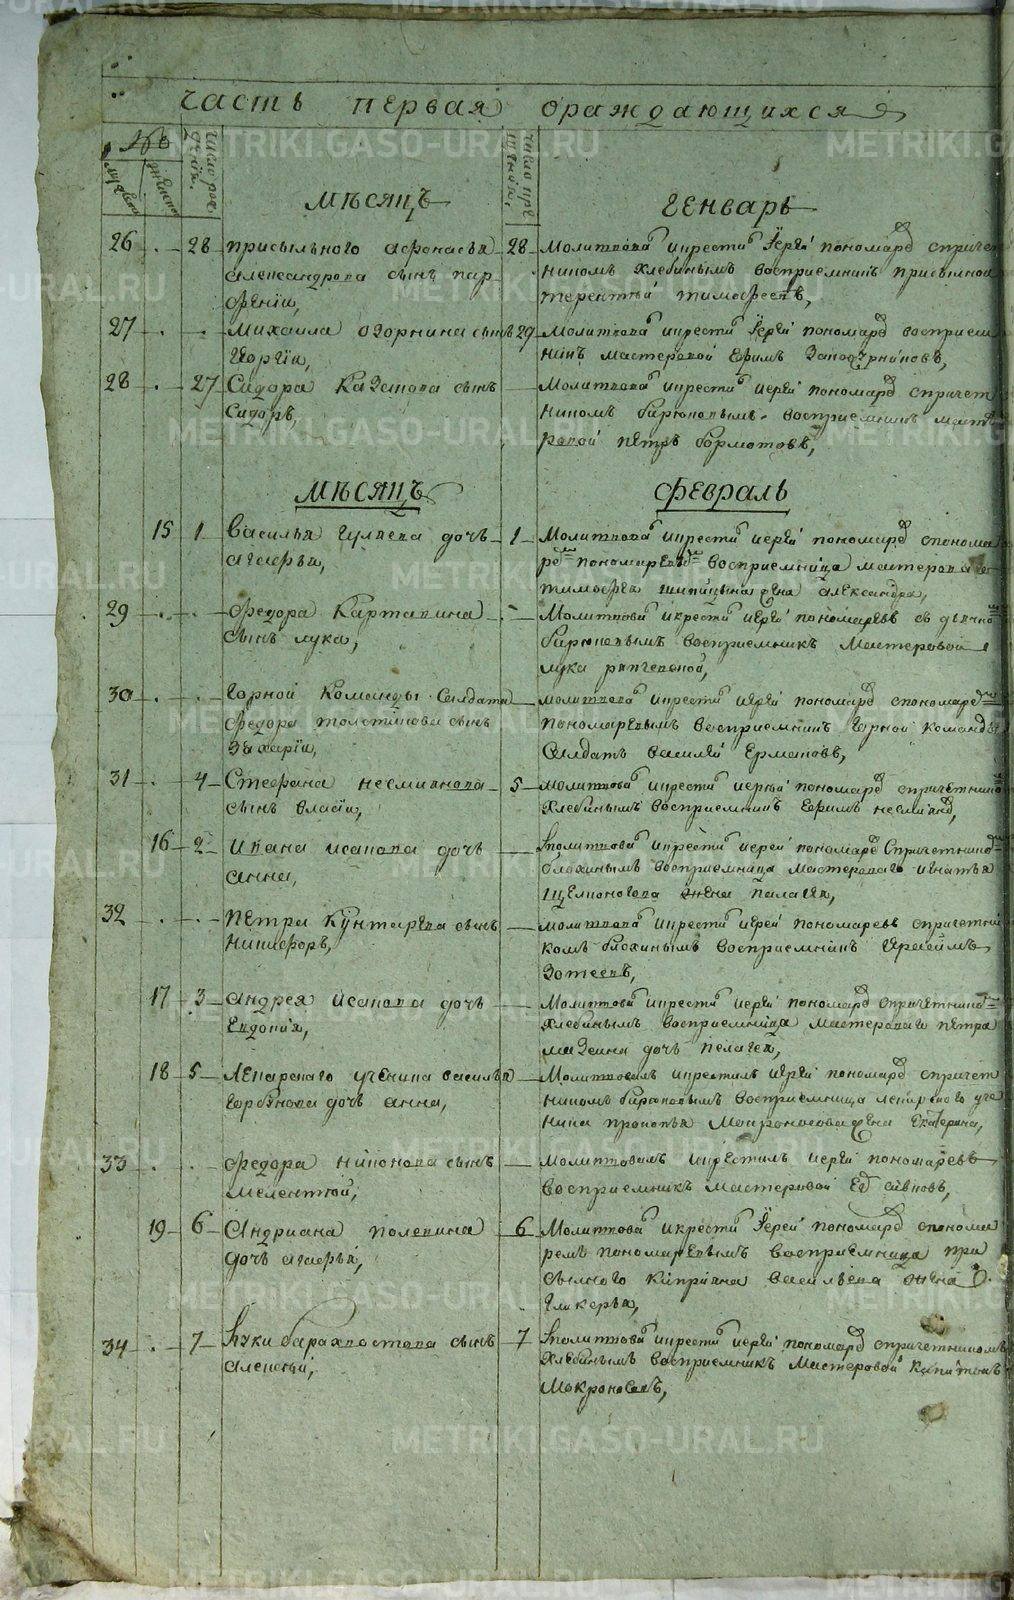 часть первая ораждающихся
№
мужеска
женска
число рождения.
число крещения.
мѣсяцъ
генварь
26 28 присыльного афонасья
александрова сынъ пар-
фений,
28 Молитвова и крести Іерей пономарв спричет
никомъ хлебинымъ восприемникъ присылной
терентей тимофеевъ,
27 Михаила озорнина сынъ
георгій,
29 Молитвова и крести Іерей пономарв восприем
никъ мастеровой ефимъ
28 27 Сидора Казанова сынъ
Сидоръ,
Молитвова и крести иерей пономарв спричет
никомъ бирюковымъ восприемникъ масте
ровой петръ бормотовъ,
мѣсяцъ
февраль
15 1 Василья гуляева дочь
агафья,
1 Молитвова и крести иерей пономарв спонома
ре пономаревы восприемница мастерова
тимофея шипицына жена александра,
29 федора Картавина
сынъ лука,
Молитвова и крести иерей пономаревъ съ дьячко
бирюковымъ восприемникъ Мастеровой
лука
30 горной Команды Салдата
федора толстикова сынъ
Захарій,
молитвова и крести иерей пономарв спономаре
пономаревымъ восприемникъ горной команды
Салдатъ василей Ермаковъ,
31 4 Стефана несмиянова
сынъ власій,
5 молитвова и крести иерей пономарв спричетнико
хлебинымъ восприемникъ Ефимъ
16 2 Ивана исакова дочь
анна,
молитвова и крести иерей пономарв Спричетнико
блохинымъ восприемница мастероваго игнатья
щелконогова жена палагея,
32 Петра Кунгарева сынъ
никифоръ,
молитвова и крести иерей пономаревъ спричетни
комъ блохинымъ восприемникъ
Зотеевъ,
17 3 андрея исакова дочь
Евдокия,
Молитвова и крести иерей пономарв спричетнико
хлебинымъ восприемница мастероваго петра
мазеина дочь пелагея,
18 5 Лекарскаго ученика василья
горбунова дочь анна,
Молитвовалъ и крестилъ иерей пономарв спричет
никомъ бирюковымъ восприемница лекарского уче
ника прокопья Мокроносова жена Екатерина,
33 федора никонова сынъ
мелентей,
молитвовалъ и крестилъ иерей пономаревъ
восприемникъ мастеровой
19 6 Андриана полевина
дочь агафья,
6 Молитвова и крести Іерей пономарв спонома
ремъ пономаревымъ восприемница при
сылного киприяна васильева жена
гликерья,
34 7 Луки барахвостова сынъ
алексей,
7 молитвова и крести иерей пономарв спричетникомъ
хлебинымъ восприемникъ Мастеровой капитонъ
Мокроносовъ,
METRIKI.GASO-URAL.RU